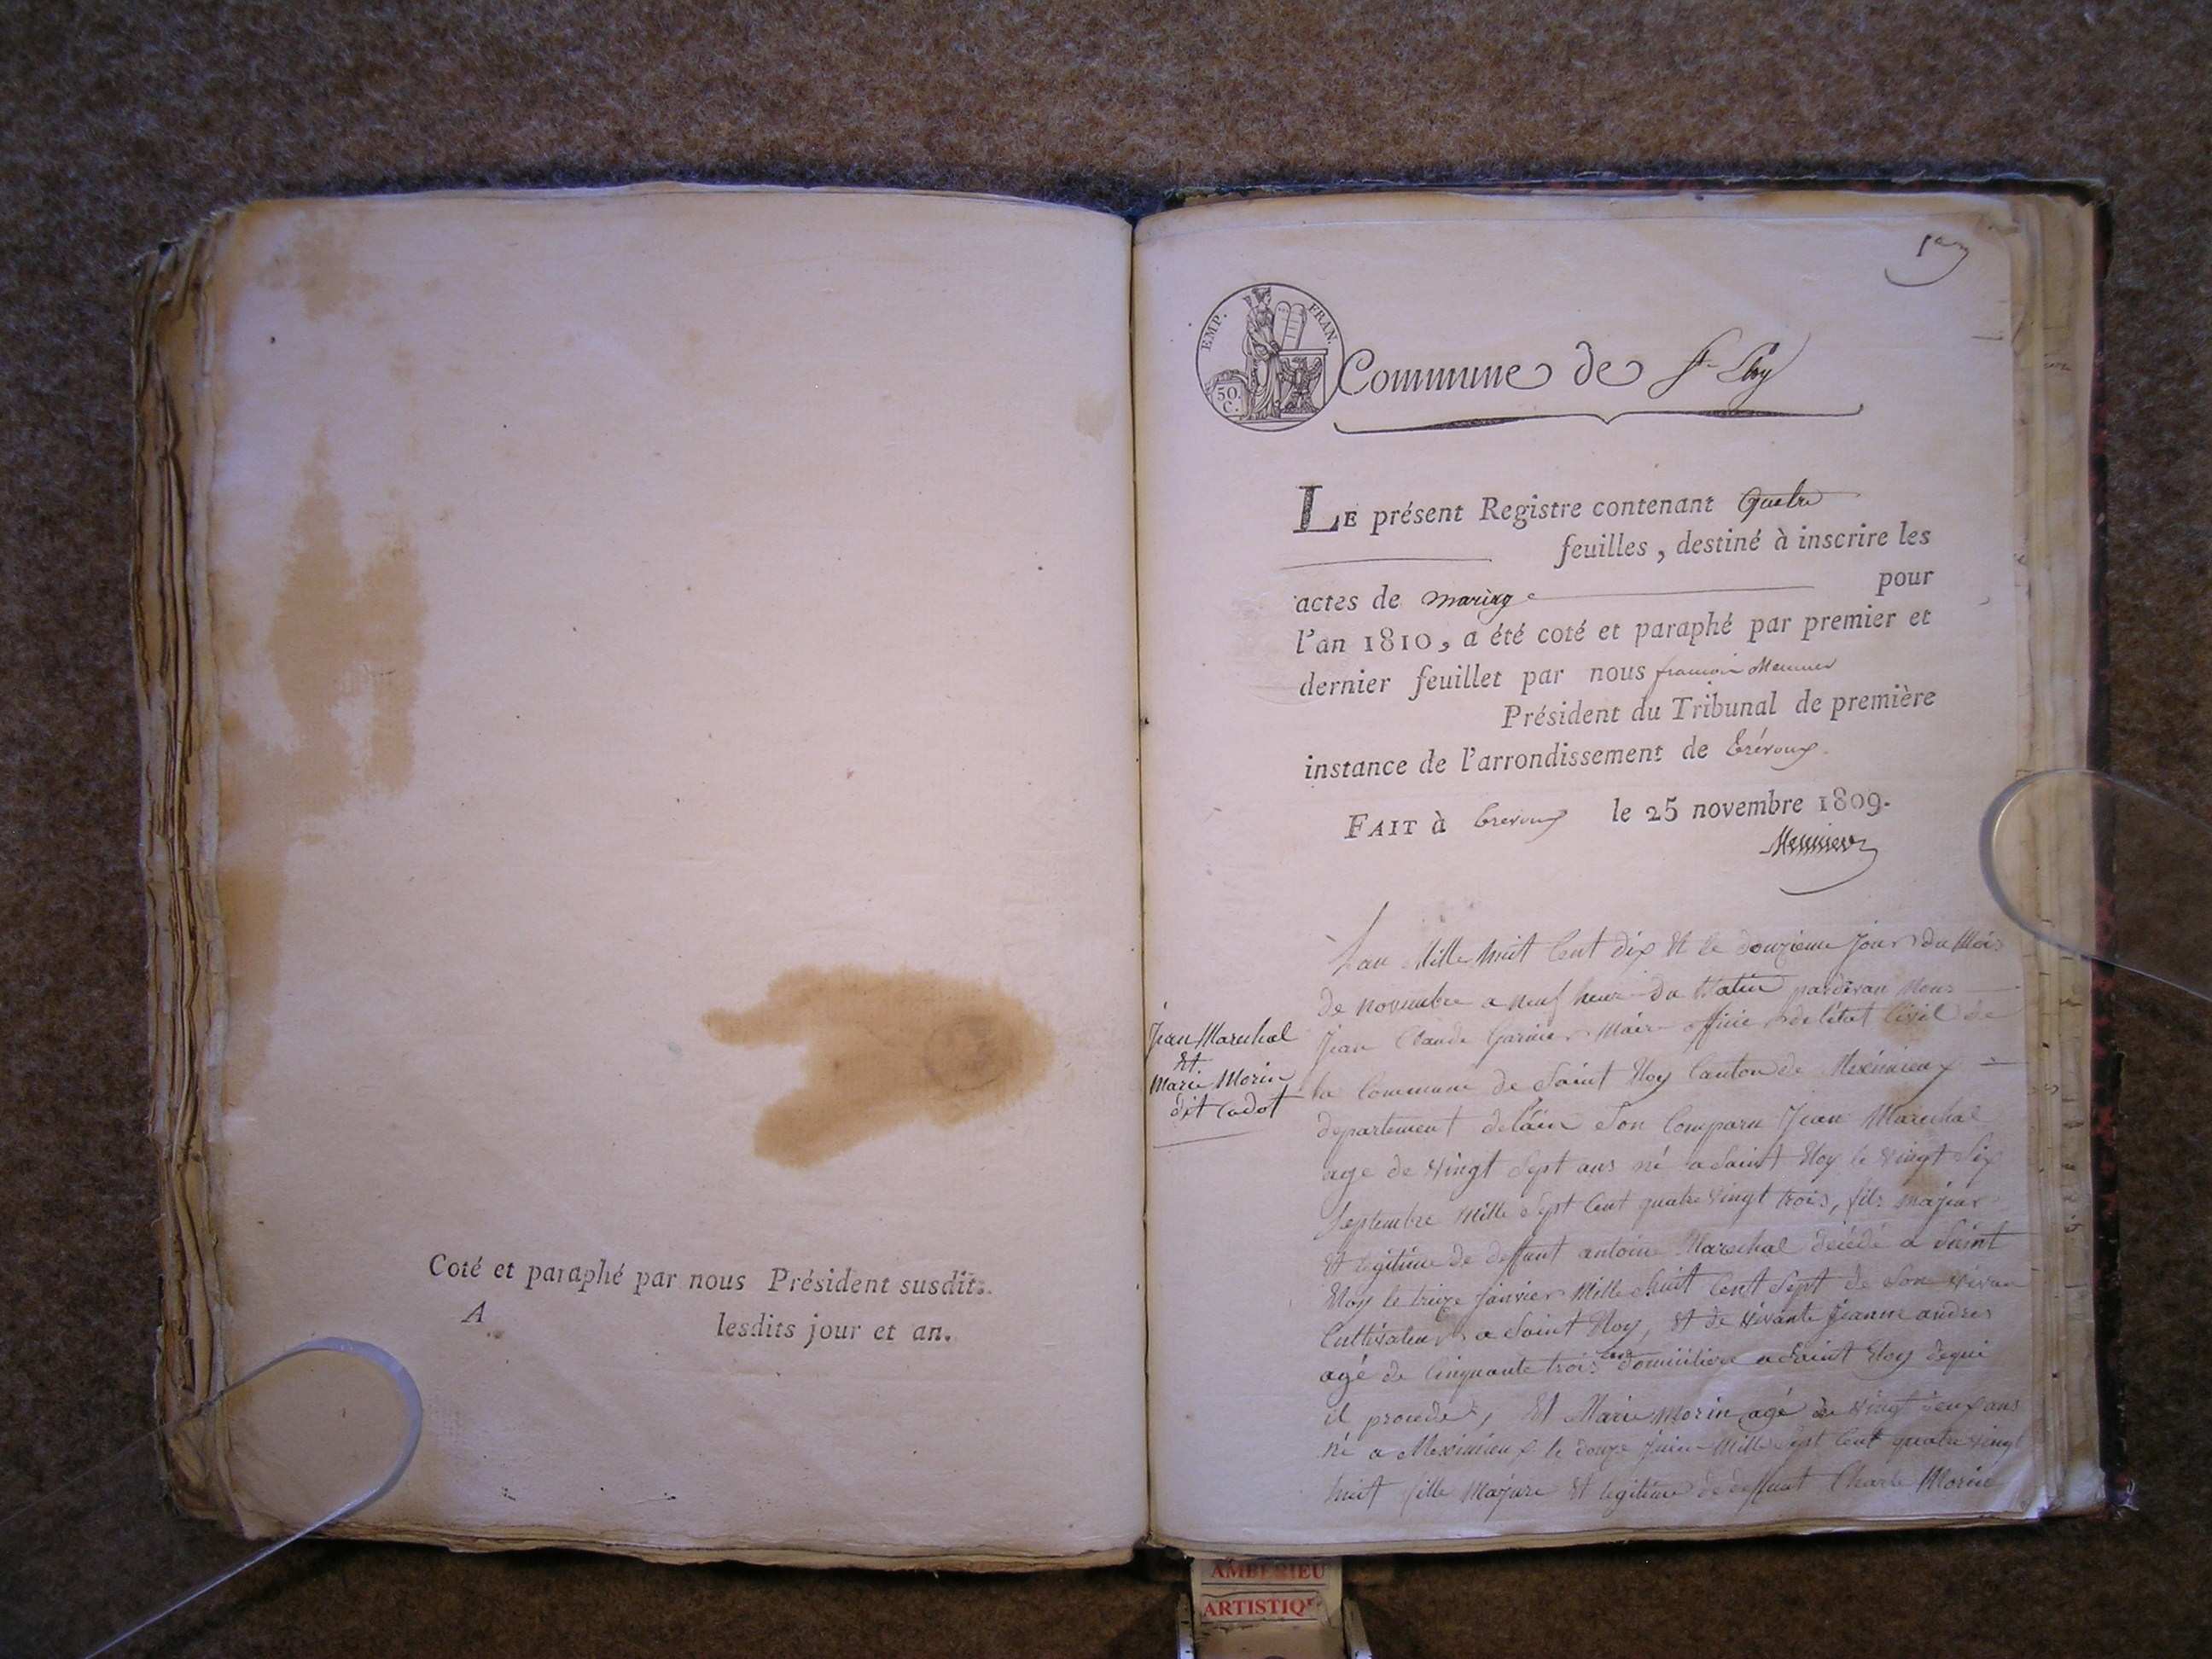 Coté et paraphé par nous Président susdit.
A lesdits jour et an.
1er
EMP. FRAN.
50. C.
Commune de St Eloy
LE présent Registre contenant quatre
feuilles, destiné à inscrire les
actes de mariage pour
l'an 1810, a été coté et paraphé par premier et
dernier feuillet par nous françois Meunier
Président du Tribunal de première
instance de l'arrondissement de trévoux
FAIT à trevoux le 25 novembre 1809.
Meunier
Jean Marechal
Et
Marie Morin
dit Cadot
Lan Mille huit Cent dix Et le douzieme Jour du Mois
de novembre a neuf heure du Matin pardevan Nous
Jean Claude Garnier Maire officie de létat Civil de
la Commune de Saint Eloy Canton de Meximieux
departement de lain Son Comparu Jean Marechal
age de vingt Sept ans né a Saint Eloy le vingt Six
Septembre Mille Sept Cent quatre vingt trois, fils majeur
Et legitime de deffunt antoine Marechal décédé a Saint
Eloy le treize Janvier Mille huit Cent Sept de Son vivan
Cultivateur a Saint Eloy, Et de vivante Jeanne andres
agé de Cinquante trois ans domiciliere a Saint Eloy dequi
il procede, Et Marie Morin agé de vingt deux ans
né a Meximieux le douze Juin Mille Sept Cent quatre vingt
huit fille Majure Et legitime de deffunt Charle Morin
AMBERIEU
ARTISTIQ